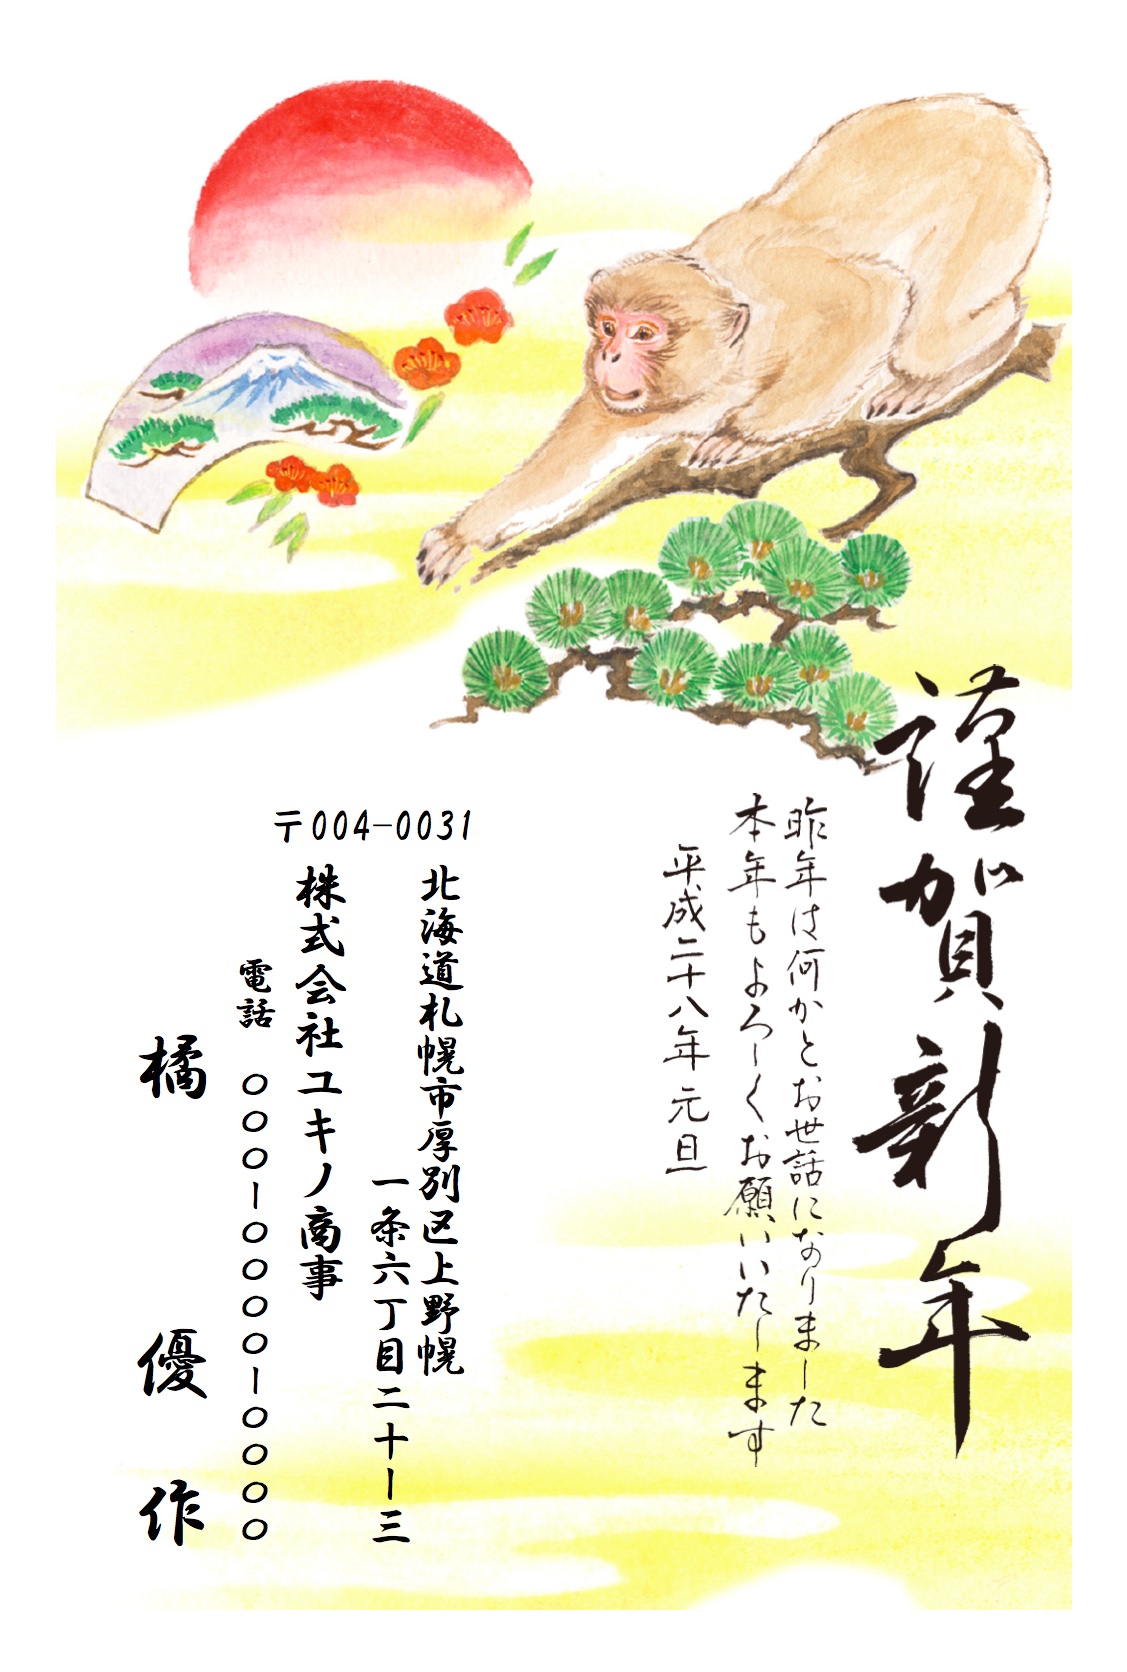 謹賀新年
昨年は何かとお世話になりました
本年もよろしくお願いいたします
平成二十八年 元旦
〒004-0031
北海道札幌市厚別区上野幌
一条六丁目二十ー三
株式会社ユキノ商事
電話 〇〇〇ー〇〇〇〇ー〇〇〇〇
橘 優作